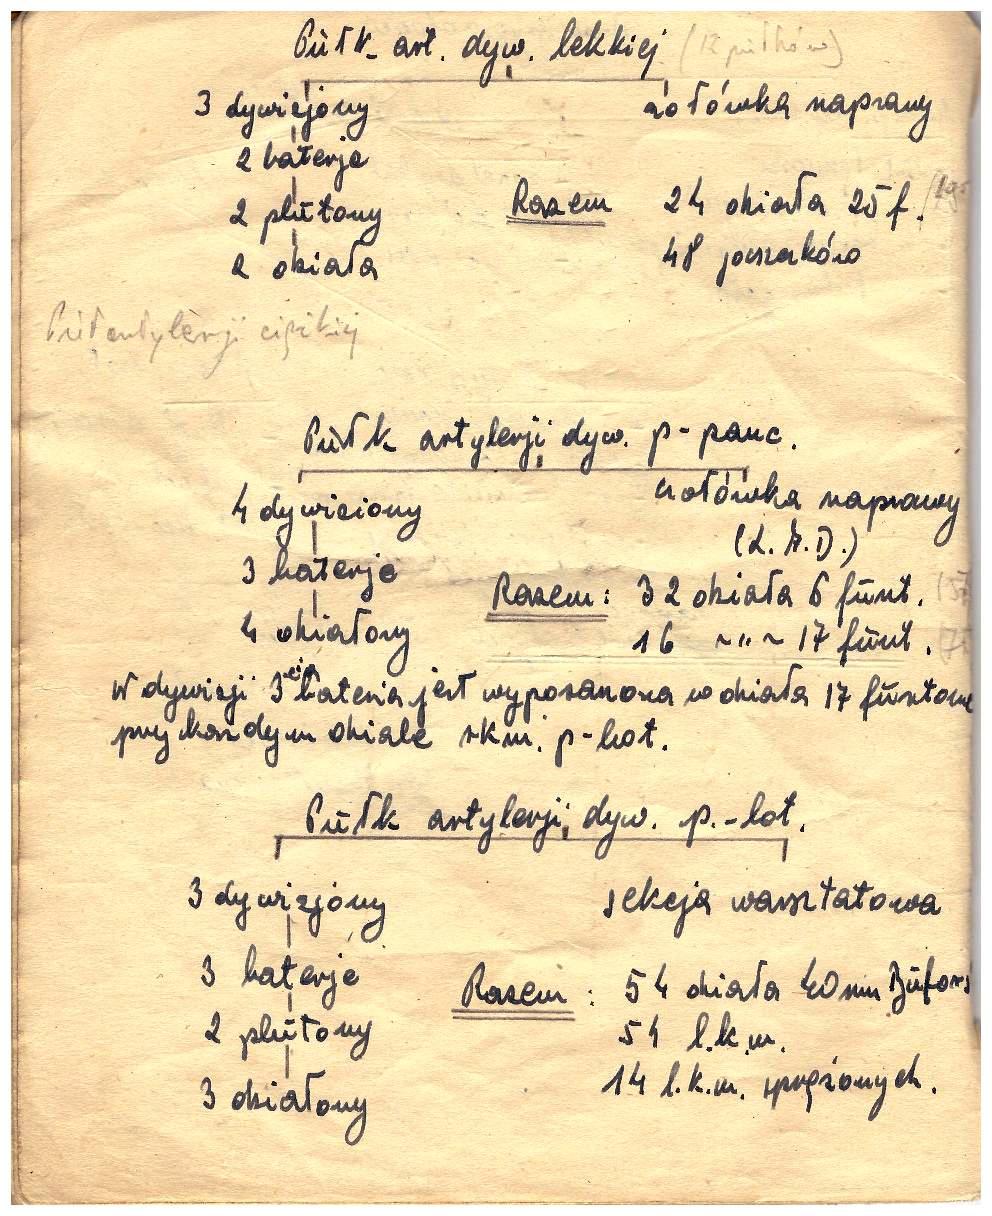 Pułk art. dyw. lekkiej (12 pułków)
3 dywizjony czołówka naprawy
2 baterje
2 plutony Razem 24 działa 25 f.
2 działa 48 jaszczków
Puł artylerji ciężkiej
Pułk artylerji dyw. p-panc.
4 dywiziony czołówka naprawy
(L. A. D.)
3 baterje Razem: 32 działa 6 funt.
4 działony 16 ~ " ~ 17 funt.
W dywizji 3-cia bateria jest wyposarzona w działa 17 funtowe
przy każdym dziale rkm. p-lot.
Pułk artylerji dyw. p.-lot.
3 dywizjony sekcja warsztatowa
3 baterje Razem: 54 działa 40 mm Bufors
2 plutony 54 l.k.m.
3 działony 14 l.k.m. sprężonych.